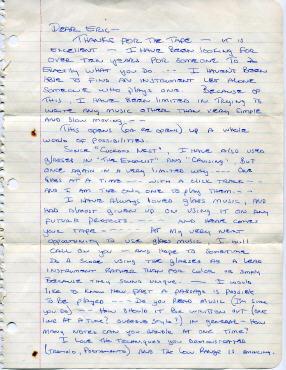 DEAR ERIC-
THANKS FOR THE TAPE - IT IS
EXCELLENT - I HAVE BEEN LOOKING FOR
OVER TEN YEARS FOR SOMEONE TO DO
EXACTLY WHAT YOU DO -- I HAVEN'T BEEN
ABLE TO FIND AN INSTRUMENT LET ALONE
SOMEONE WHO PLAYS ONE. BECAUSE OF
THIS, I HAVE BEEN LIMITED IN TRYING TO
WRITE ANY MUSIC OTHER THAN VERY SIMPLE
AND SLOW MOVING --
THIS OPENS (OR RE OPENS) UP A WHOLE
WORLD OF POSSIBILITIES.
SINCE "CUCKOOS NEST", I HAVE ALSO USED
GLASSES IN "THE EXORCIST" AND "CRUISING". BUT
ONCE AGAIN IN A VERY LIMITED WAY -- ONE
GLASS AT A TIME -- WITH A CLICK TRACK -
AND I AM THE ONLY ONE TO PLAY THEM -
I HAVE ALWAYS LOVED GLASS MUSIC, AND
HAD ALMOST GIVEN UP ON USING IT ON ANY
FUTURE PROJECTS -- AND HERE COMES
YOUR TAPE - AT MY VERY NEXT
OPPORTUNITY TO USE GLASS MUSIC, I WILL
CALL ON YOU - AND HOPE TO SOMETIME
DO A SCORE USING THE GLASSES AS A LEAD
INSTRUMENT RATHER THAN FOR COLOR OR SIMPLY
BECAUSE THEY SOUND UNIQUE. - I WOULD
LIKE TO KNOW HOW FAST A PASSAGE IS POSSIBLE
TO BE PLAYED -- DO YOU READ MUSIC (I'M SURE
YOU DO) -- HOW SHOULD IT BE WRITTEN OUT (ONE
LINE AT A TIME?) IN GENERAL - HOW
MANY NOTES CAN YOU HANDLE AT ONE TIME?
I LOVE THE TECHNIQUES YOU DEMONSTRATED
(TREMOLO, PORTAMENTO) AND THE LOW RANGE IS AMAZING.